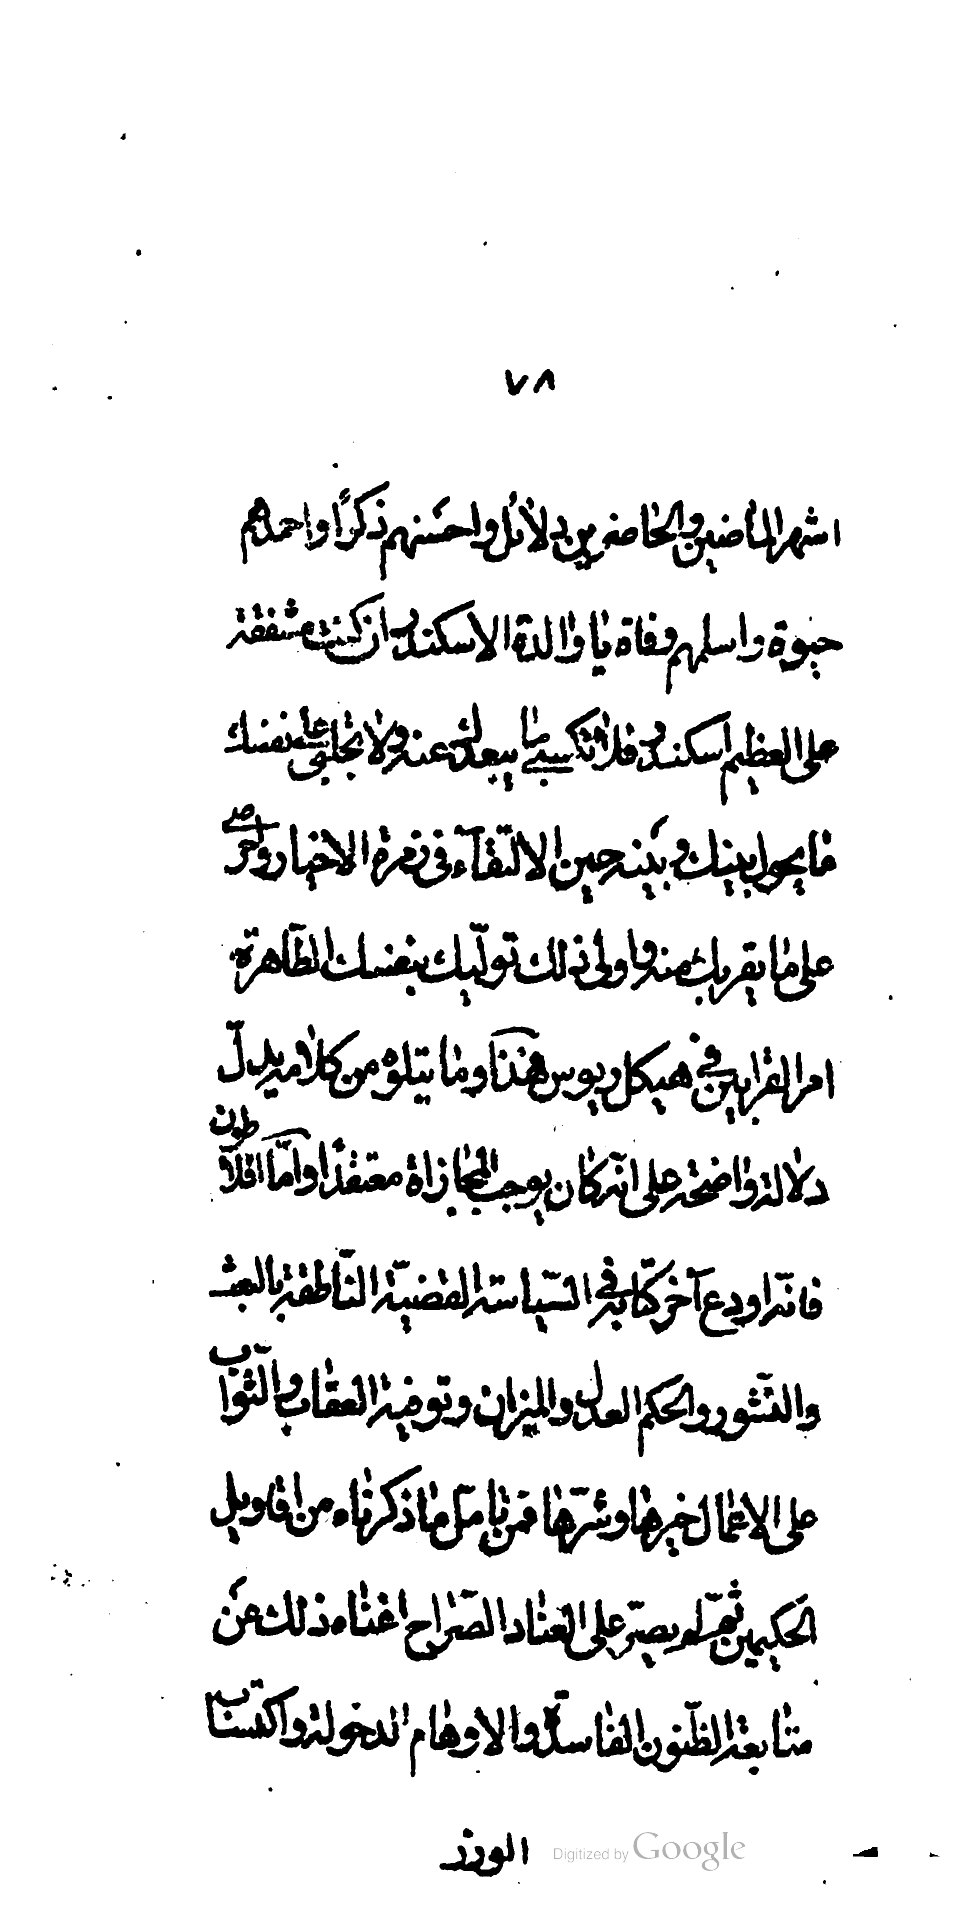 ٧٨
اشهر الماضين والحاضرين دلائل واحسنهم ذكرًا واحمدهم
حيوة واسلمهم وفاة يا والدة الاسكندر ان كنت مشفقة
على العظيم اسكندر فلا تكسبى ما يبعدك عنه ولا تجلبى على نفسك
ما يحول بينك وبينه حين الالتقآء فى زمرة الاخيار واحرصى
على ما يقربك منه واولى ذلك توليك بنفسك الطاهرة
امر القرابين فى هيكل زيوس هذا وما يتلوه من كلامه يدلّ
دلالة واضحة على انّه كان يوجب المجازاة معتقدًا وامّا افلاطون
فانّه اودع آخر كتابه فى السّياسة القضيّة النّاطقة بالبعث
والنّشور والحكم العدل والميزان وتوفية العقاب والثّواب
على الاعمال خيرها وشرّها فمن تامّل ما ذكرناه من اقاويل
الحكيمين ثمّ لم يصرّ على العناد الصّراح اغناه ذلك عن
متابعة الظّنون الفاسدة والاوهام المدخولة واكتساب
الوزر
Digitized by Google